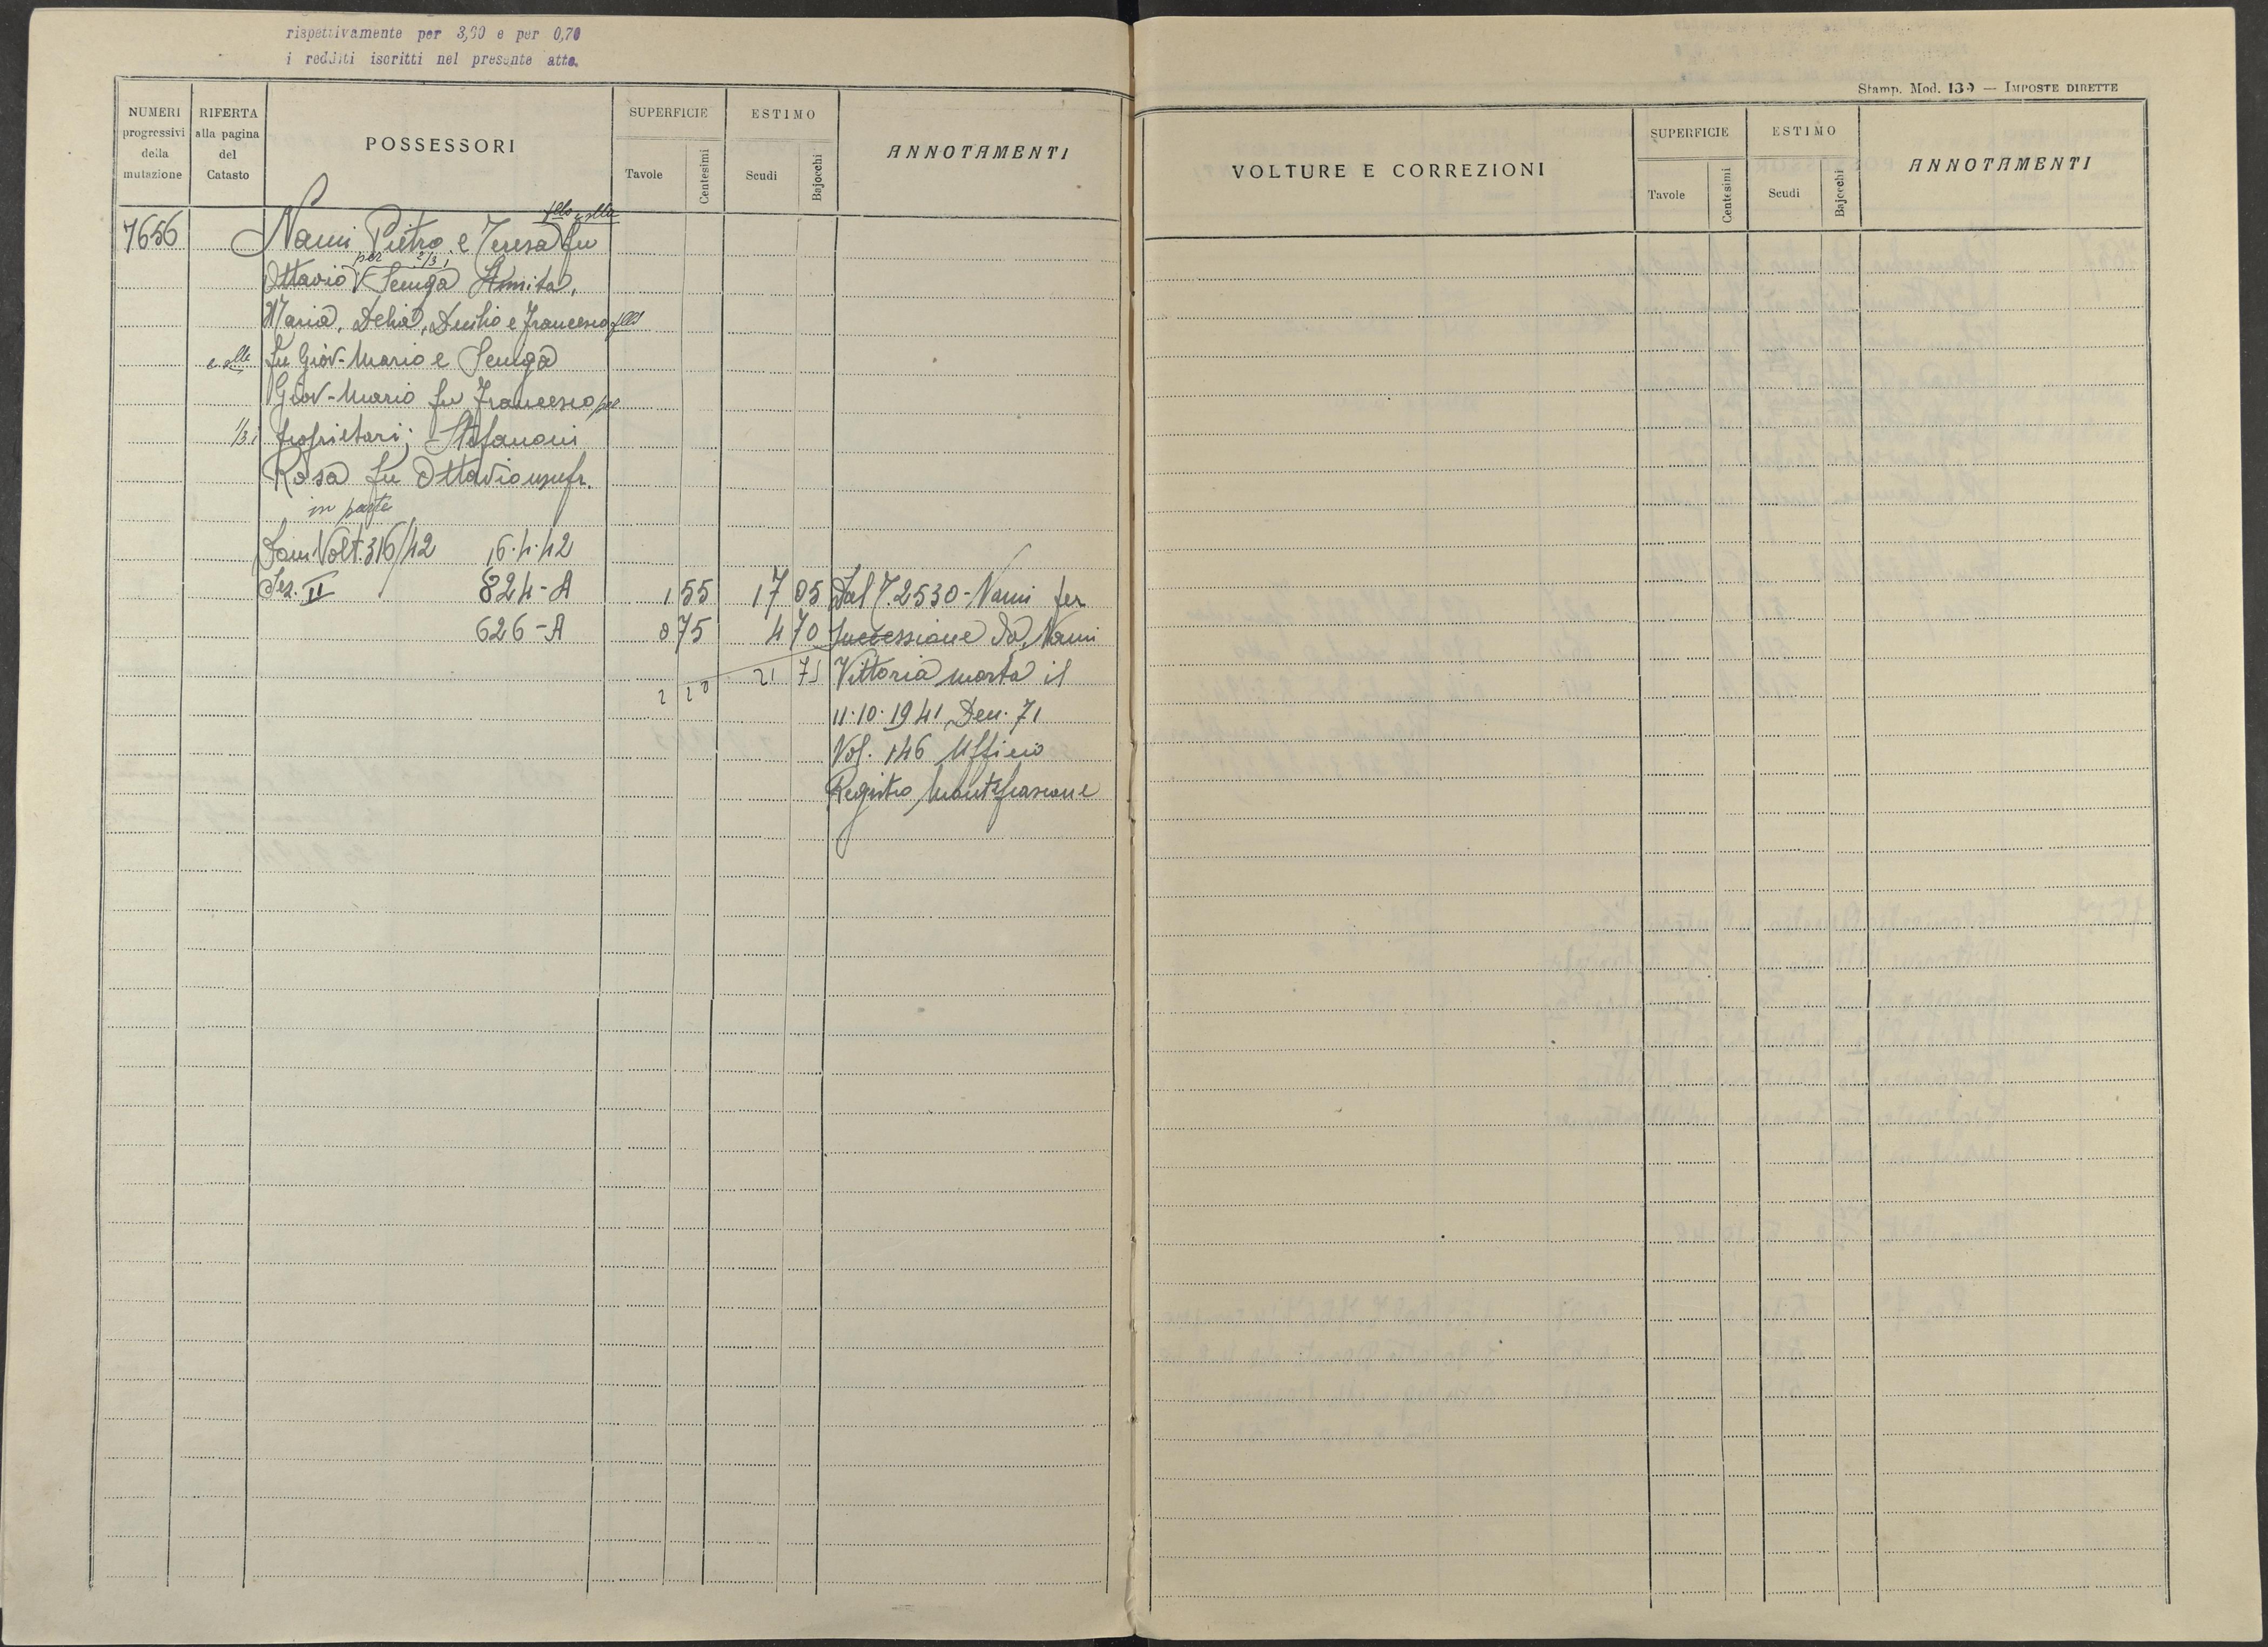 rispettivamente per 3,60 e per 0,70
i redditi iscritti nel presente atto.
NUMERI progressivi della mutazione
RIFERTA alla pagina del Catasto
POSSESSORI
SUPERFICIE
Tavole
Centesimi
ESTIMO
Scudi
Bajocchi
ANNOTAMENTI
7656
Nami Pietro e Teresa fllo e slla fu
Ottavio per 2/3, Senigà Annita,
Maria, Delia, Duilio e Francesco flli
e slle fu Giov-Mario e Senigà
Giov-Mario fu Francesco per
1/3 i proprietari; Stefanoni
Rosa fu Ottavio usufr.
in parte
Dom. Volt. 316/42 16.4.42
Sez. II 824-A 1 55 17 05 Dal 7.2530-Nami per
626-A 0 75 4 70 successione da Nami
2 20 21 75 Vittoria morta il
11.10.1941 Den. 71
Vol. 146 Ufficio
Registro Montefiascone
Stamp. Mod. 139 — IMPOSTE DIRETTE
VOLTURE E CORREZIONI
SUPERFICIE
Tavole
Centesimi
ESTIMO
Scudi
Bajocchi
ANNOTAMENTI